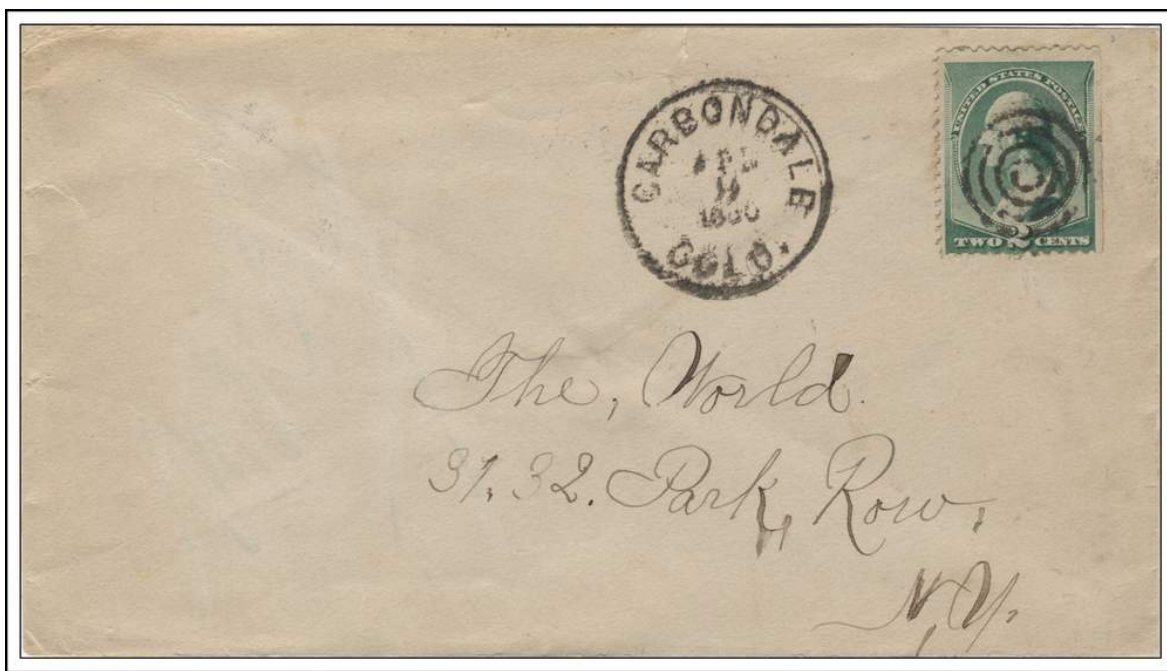 CARBONDALE
APR
COLO.
UNITED STATES POSTAGE
TWO 2 CENTS
The, World.
31.32. Park, Row,
N,Y.